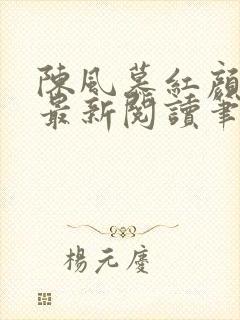 陳風暮紅顏
最新閱讀筆
楊元慶